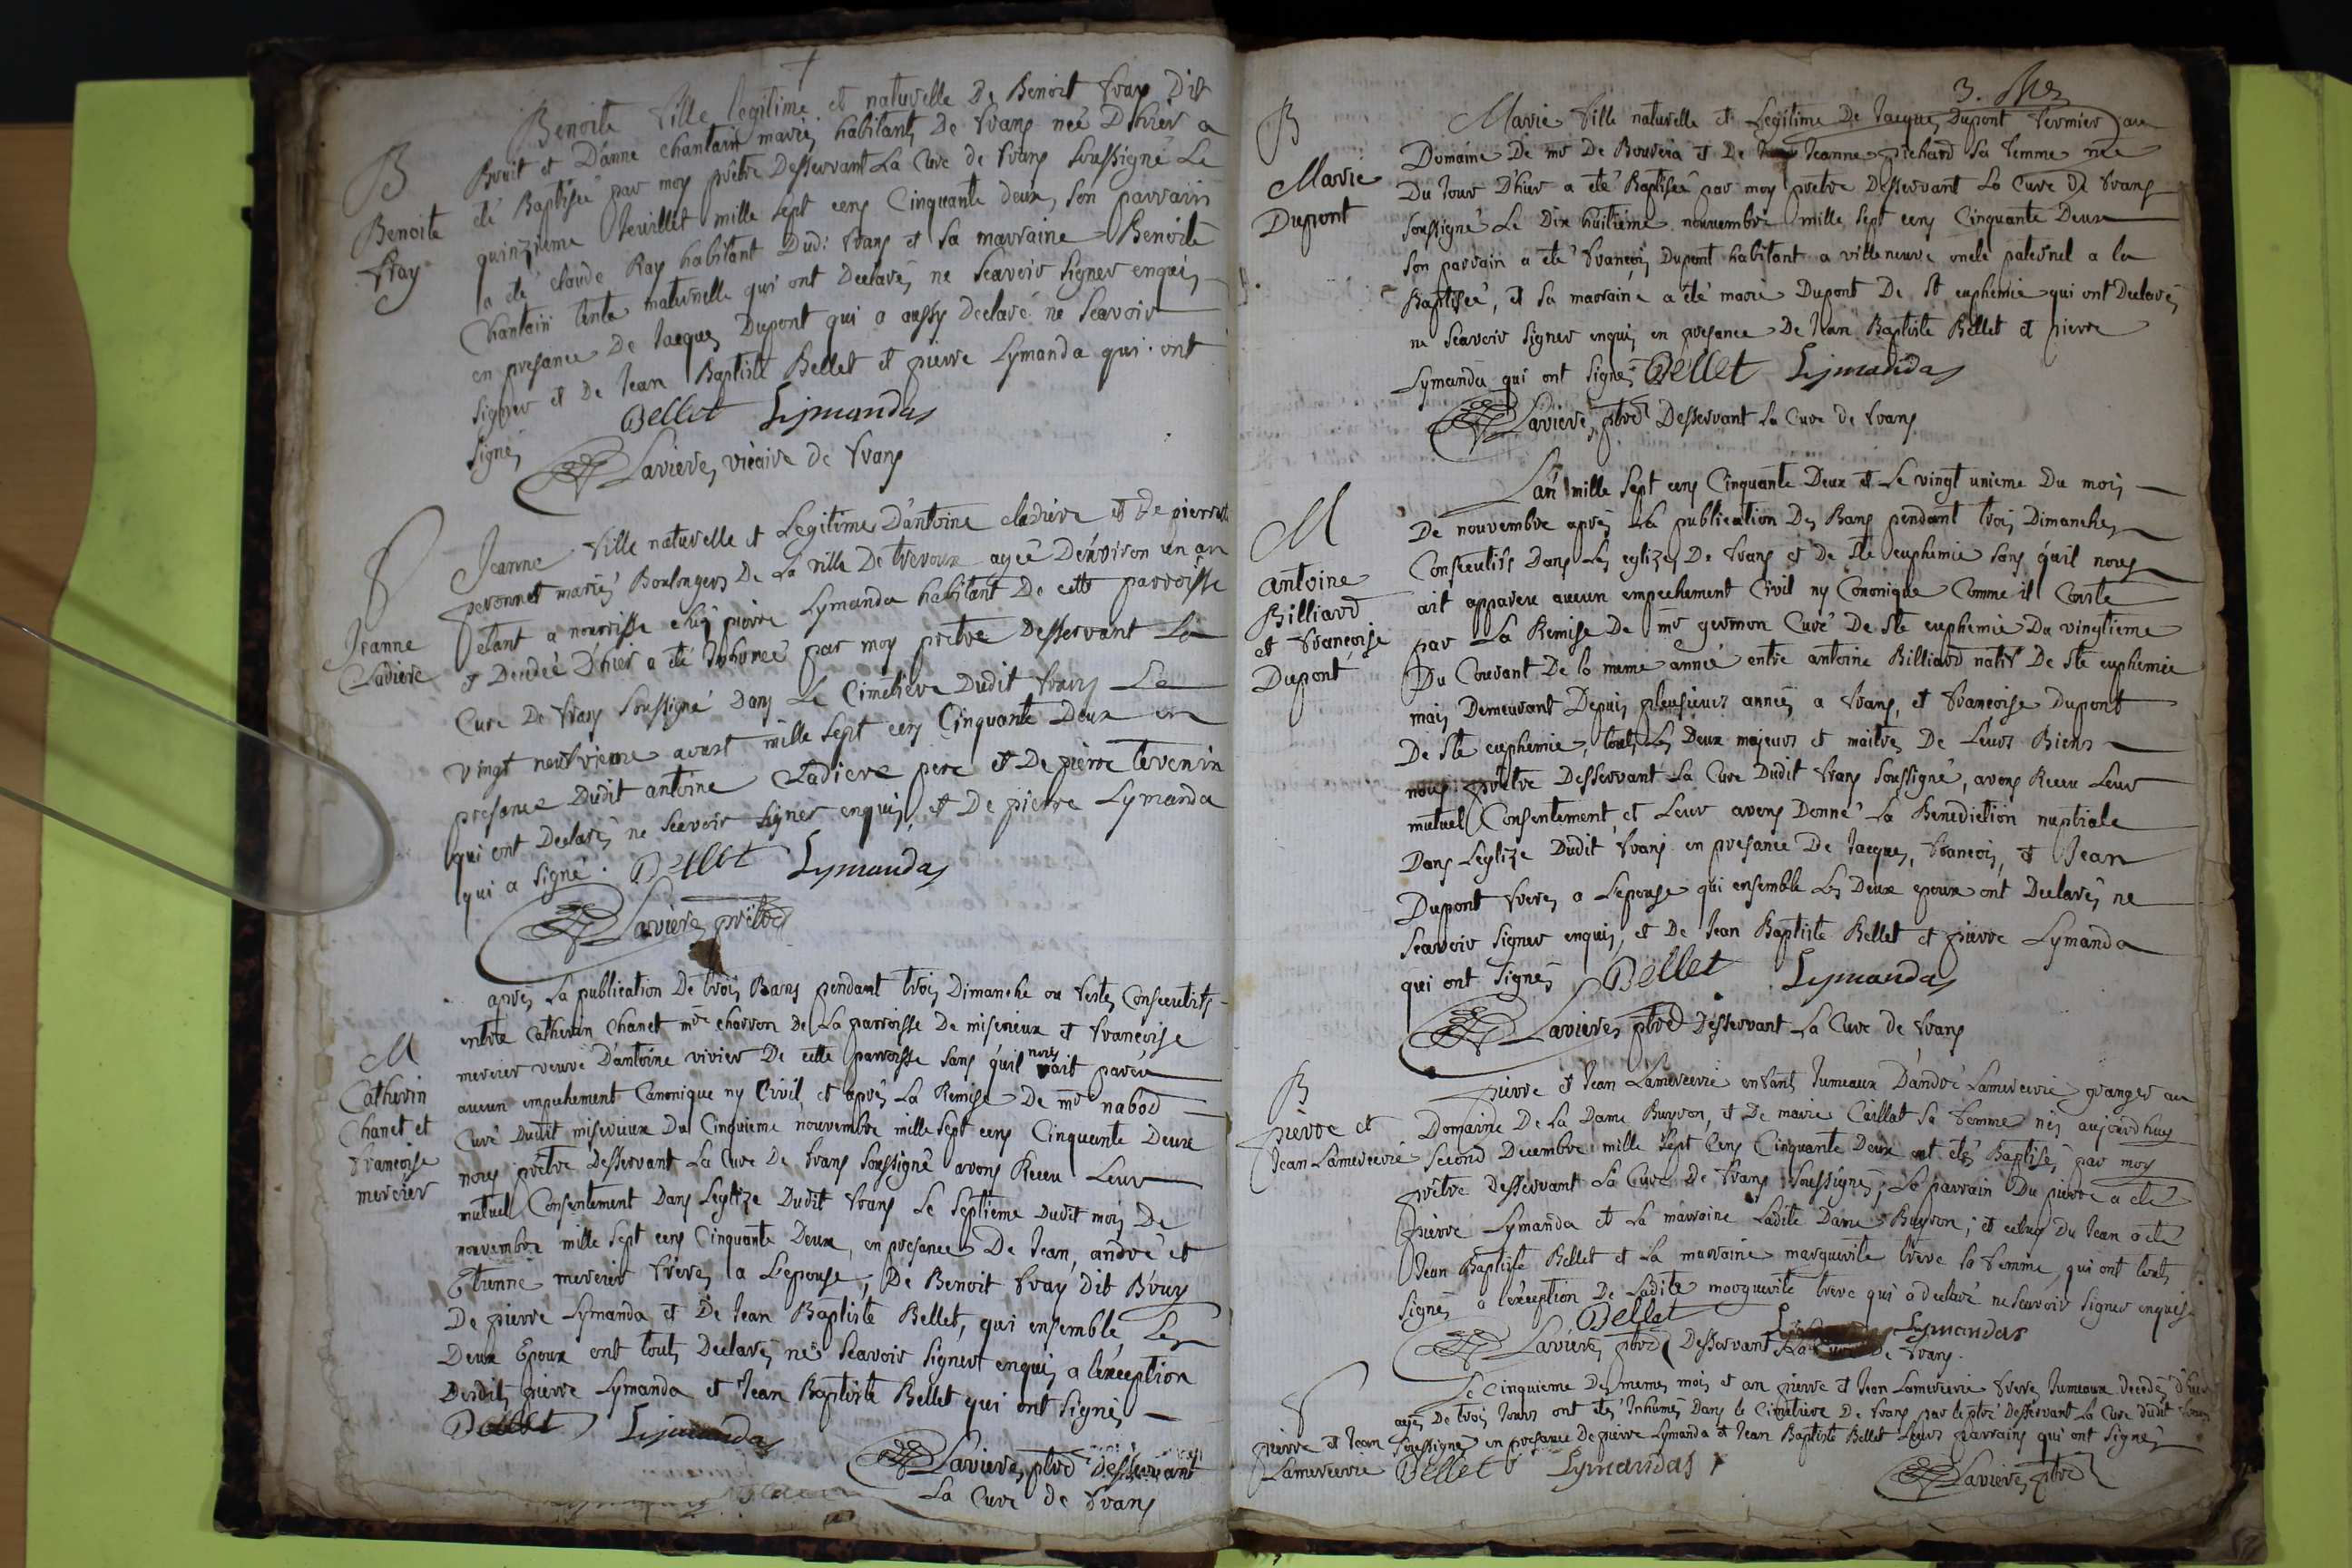 Benoite fille legitime et naturelle De Benoit fray Dit
Bruit et D'anne chantain mariés habitants De frans née D'hier a
B
Benoite
fray
été Baptisée par moy prêtre Desservant La Cure de frans soussigné Le
quinzieme Jeuillet mille sept cens Cinquante deux, son parrain
a été claude Ray habitant Dudt frans et sa marraine Benoite
Chantain tente maternelle qui ont Declarés ne scavoir signer enquis
en presance De Jacques Dupont qui a aussy declaré ne scavoir
signer et De Jean Baptiste Bellet et pierre Lymanda qui ont
signés
Bellet Lymandas
Lavieres vicaire de frans
Jeanne
Cladiere
Jeanne fille naturelle et Legitime D'antoine cladiere et De pierrette
peronnet mariés Boulongers De La ville De trevoux agée D'environ un an
etant a nourrisse chés pierre Lymanda habitant De cette parroisse
et Decedée D'hier a été Inhumée par moy prêtre Desservant La
Cure De frans soussigné Dans Le Cimetiere Dudit frans Le
vingt neufvieme aoust mille sept cens Cinquante Deux en
presance Dudit antoine Cladiere pere et De pierre tevenin
qui ont Declarés ne scavoir signer enquis, et De pierre Lymanda
qui a signé. Bellet Lymandas
Lavieres prêtre
M
Catherin
Chanet et
francoise
mercier
après La publication De trois Bans pendant trois Dimanche ou festes Consecutifs
entre Catherin Chanet mre charron De La parroisse De miserieux et francoise
mercier veuve D'antoine vivier De cette parroisse sans qu'il nous ait pareu
aucun empechement Canonique ny Civil, et après La Remise De mr nabod
Curé Dudit miserieux Du Cinquieme nouvembre mille sept cens Cinquante Deux
nous prêtre Desservant La Cure De frans soussigné avons Receu Leur
mutuel Consentement Dans L'eglize Dudit frans Le septieme Dudit mois De
nouvembre mille sept cens Cinquante Deux, en presance De Jean, andré et
Etienne mercier freres a L'epouse, De Benoit fray dit Bruy
De pierre Lymanda et De Jean Baptiste Bellet, qui ensemble Les
Deux Epoux ont touts Declarés ne scavoir signer enquis a l'exception
Desdits pierre Lymanda et Jean Baptiste Bellet qui ont signés
Bellet Lymandas
Lavieres ptre desservant
La Cure de frans
3.
B
Marie
Dupont
Marie fille naturelle et Legitime De Jacques Dupont fermier au
Domaine De mr De Bouvera et De Jeanne pichard sa femme née
Du Jour D'hier a eté Baptisée par moy prêtre Desservant La Cure De frans
soussigné Le Dix huitieme nouvembre mille sept cens Cinquante Deux
son parrain a eté francois Dupont habitant a villeneuve oncle paternel a la
Baptisée, et sa marraine a été marie Dupont De St euphemie qui ont Declarés
ne scavoir signer enquis en presance De Jean Baptiste Bellet et pierre
Lymanda qui ont signés Bellet Lymandas
Lavieres ptre Desservant La Cure de frans
M
antoine
Billiard
et francoise
Dupont
L'an mille sept cens Cinquante Deux et Le vingt unieme Du mois
De nouvembre après La publication Des Bans pendant trois Dimanches
Consecutifs Dans Les eglizes De frans et De Ste euphemie sans qu'il nous
ait appareu aucun empechement Civil ny Cononique Comme il Conste
par La Remise De mr germon Curé De Ste euphemie Du vingtieme
Du Courant De la meme année entre antoine Billiard natif De Ste euphemie
mais Demeurant Depuis pleusieurs années a frans, et francoise Dupont
De Ste euphemie, touts Les Deux majeurs et maitres De Leurs Biens
nous prêtre Desservant La Cure Dudit frans soussigné, avons Receu Leur
mutuel Consentement, et Leur avons Donné La Benediction nuptiale
Dans L'eglize Dudit frans en presance De Jacques, francois, et Jean
Dupont freres a L'epouse qui ensemble Les Deux epoux ont Declarés ne
scavoir signer enquis, et De Jean Baptiste Bellet et pierre Lymanda
qui ont signés Bellet Lymandas
Lavieres ptre Desservant La Cure de frans
B
pierre et
Jean Lamercerie
pierre et Jean Lamercerie enfants Jumeaux D'andré Lamercerie granger au
Domaine De La Dame Buyron, et De marie Caillat sa femme nés aujourdhuy
second Decembre mille sept Cens Cinquante Deux ont étés Baptisés par moy
prêtre desservant La Cure De frans soussigné; Le parrain Du pierre a eté
pierre Lymanda et La marraine Ladite Dame Buyron; et celuy Du Jean a eté
Jean Baptiste Bellet et La marraine marguerite treve sa femme, qui ont touts
signés a l'exeption De Ladite marguerite treve qui a declaré ne scavoir signer enquise
Bellet Lymandas
Lavieres ptre Desservant La Cure De frans.
pierre et Jean
Lamercerie
Le Cinquieme Des memes mois et an pierre et Jean Lamercerie freres Jumeaux decedés d'hier
agés De trois Jours ont étés Inhumés Dans le Cimetiere De frans par le ptre Desservant La Cure dudit frans
soussigné en presance De pierre Lymanda et Jean Baptiste Bellet Leurs parrains qui ont signés
Bellet Lymandas
Lavieres ptre